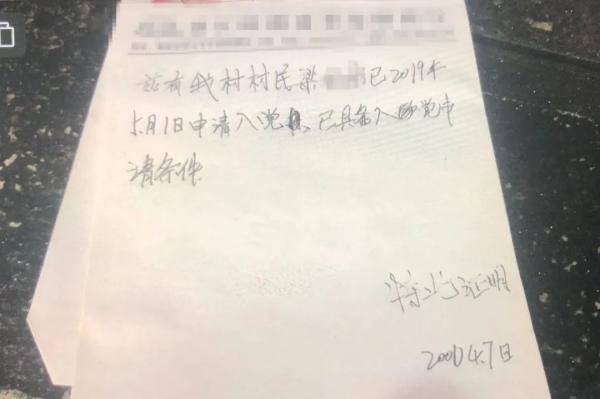 兹有我村村民梁 已2019年
5月1日申请入党 已具备入党申
请条件
特此证明
2000 4.7日